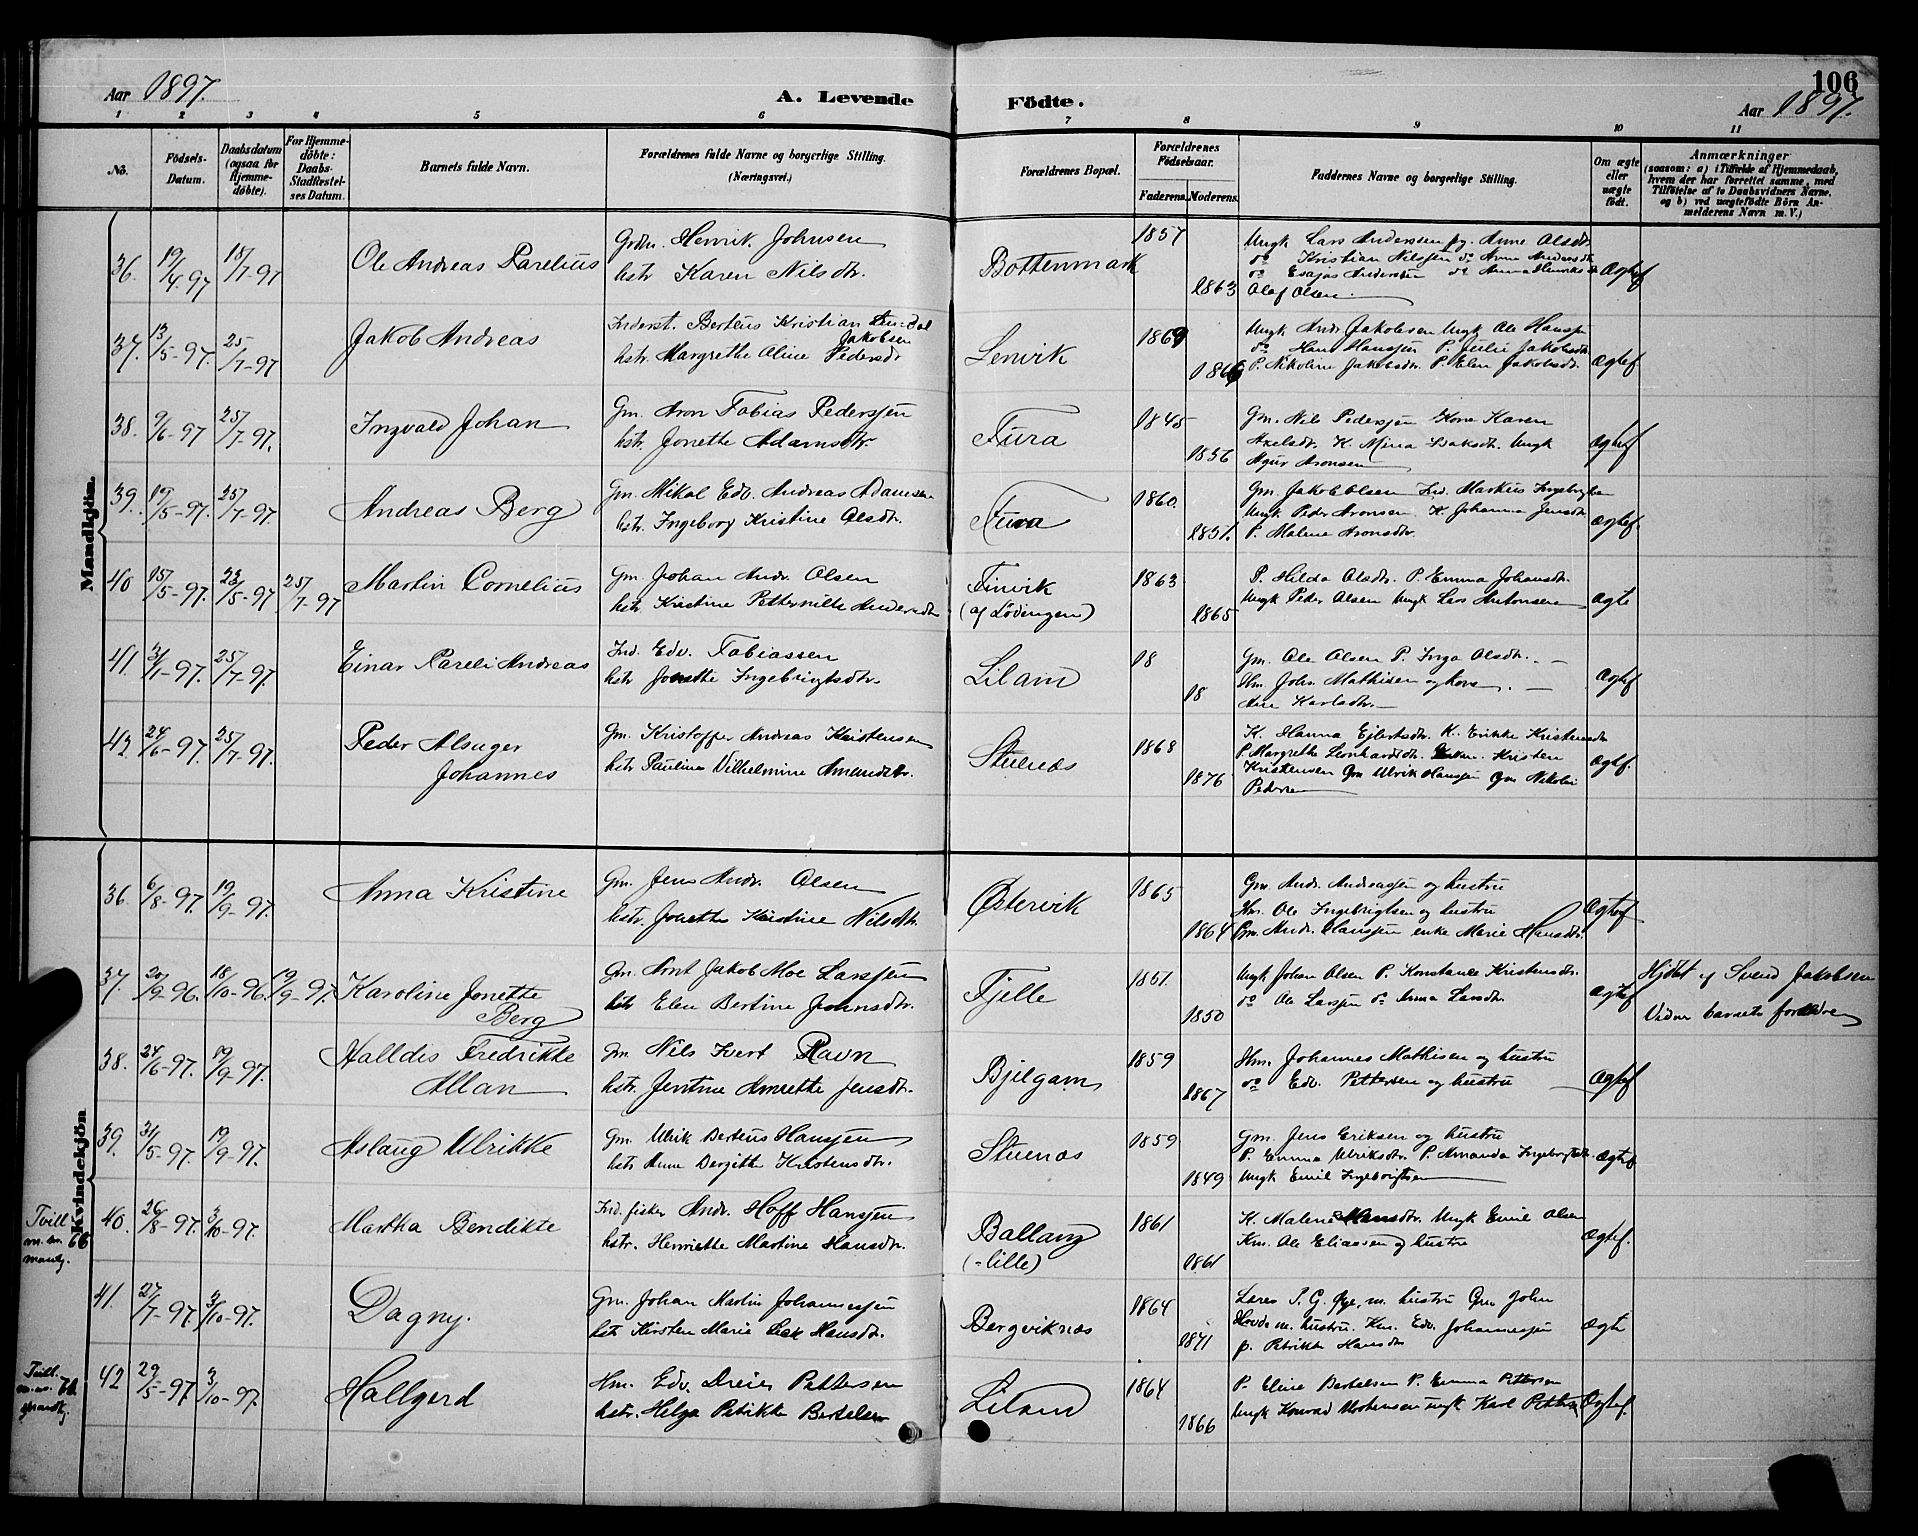 106
Aar 1897. A. Levende Födte. Aar 1897.
1 2 3 4 5 6 7 8 9 10 11
No. Födsels-Datum. Daabsdatum (ogsaa for Hjemmedöbte). For Hjemmedöbte: Daabs-Stadfæstelses Datum. Barnets fulde Navn. Forældrenes fulde Navne og borgerlige Stilling. (Næringsvei.) Forældrenes Bopæl. Forældrenes Födselsaar. Faderens. Moderens. Faddernes Navne og borgerlige Stilling. Om ægte eller uægte födt. Anmærkninger (saasom: a) i Tilfælde af Hjemmedaab, hvem der har forrettet samme, med Tilföielse af to Daabsvidners Navne. og b) ved uægtefödte Börn Anmelderens Navn m. V.)
Mandkjön.
36. 19/4-97 18/7-97 Ole Andreas Parelius Grdbr. Henrik Johnsen Bottenmark 1857 Ungk Lars Anderssen pg. Anne Olsdtr.
hstr Karen Nilsdtr. 1863 do Kristian Nilssen do Anne Andersdtr Ægtef
do Esajas Andersen do Anna Henriksdtr
Olaf Olsen
37. 13/5-97. 25/7-97 Jakob Andreas Inderst. Berteus Kristian Jakobsen Lenvik 1869 Ungk Andr. Jakobsen Ungk Ole Hanssen
hstr. Margrethe Oline Pedersdtr 1866 do Hans Hanssen P. Julie Jakobsdtr. Ægtef
P. Nikoline Jakobsdtr. P. Elen Jakobsdtr.
38. 9/6-97 25/7-97. Ingvald Johan Gm. Aron Tobias Pederssen Fura 1845 Gm. Nils Pederssen Kone Karen
hstr. Jonette Adamsdtr. 1856 Axelsdtr. K. Mina Isaksdtr. Ungk Ægtef
Aronsen
39. 19/5-97. 25/7-97. Andreas Berg Gm. Mikal Edv. Andreas Adamsen Fura 1860. Gm. Jakob Olsen Ind. Markus Ingebrigtsen
hstr. Ingeborg Kristine Olsdtr. 1857. Ungk Peder Aronsen K. Johanna Jensdtr Ægtef
P. Malene Aronsdtr.
40 15/5-97. 23/5-97 25/7-97 Martin Cornelius Gm. Johan Andr. Olsen Finvik 1863 P. Hilda Olsdtr. P. Emma Johansdtr.
hstr Kristine Petternille Andersdtr (af Lödingen) 1865 Ungk Peder Olsen Ungk Lars Antonsen Ægte
41. 3/1-97. 25/7-97. Einar Pareli Andreas Ind. Edv. Tobiassen Liland 18 Gm. Ole Olsen P. Inga Olsdtr.
hstr Jonette Ingebrigtsdtr. 18 Hm. Johs. Mathisen og kone Ægtef
Ane Karlsdtr.
42 24/6-97. 25/7-97. Peder Alsuger Johannes Gm. Kristoffer Andreas Kristensen Stuenæs 1868 K. Hanna Ejlertsdtr. K. Erikke Kristensdtr
hstr Pauline Vilhelmine Amundsdtr. 1876 P. Margrethe Leonhardsdtr. Kristen Ægtef.
Kristensen Gm Ulrik Hanssen Gm Nikolai
Pedersen
Kvindekjön
36. 6/8-97. 19/9-97. Anna Kristine Gm. Jens Andr. Olsen Østervik 1865 Gm. Andr. Andreassen og hustru
hstr. Jonette Kristine Nilsdtr. 1864 Hm. Ole Ingebrigtsen og hustru Ægtef
Gm. Andr. Hanssen enke Marie Hansdtr.
37. 20/9-96. 18/10-96. 19/9-97. Karoline Jonette Berg Gm. Arnt Jakob Moe Larssen Fjelle 1851. Ungk Johan Olsen P. Konstance Kristensdtr. Hjdbt af Svend Jakobsen
hstr Elen Bertine Johnsdtr. 1850 do Ole Larssen do Anna Larsdtr. Ægtef Vidner barnets forældre
38. 24/6-97. 19/9-97. Halldis Fredrikke Allan Gm Nils Ivert Ravn Bjelgam 1859 Hm. Johannes Mathisen og hustru
hstr. Jentine Anette Jensdtr. 1867 do Edv. Pettersen og hustru Ægtef
39. 31/5-97. 19/9-97. Aslaug Ulrikke Gm. Ulrik Berteus Hanssen Stuenæs 1859 Gm. Jens Eriksen og hustru
hstr Ane Bergitte Kristensdtr. 1849 P. Emma Ulriksdtr. P. Amanda Ingebrigtsdtr. Ægtef
Ungk Emil Ingebrigtsen
Tvill. m. no. 66 mandkj.
40. 26/8-97. 3/10-97. Martha Bendikte Ind. fisker Andr. Hoff Hanssen Ballang (-lille) 1861 K. Malene Hansdtr. Ungk Emil Olsen
hstr. Henriette Martine Hansdtr. 1861 Km. Ole Eliassen og hustru Ægtef.
41. 27/7-97. 3/10-97. Dagny. Gm. Johan Martin Johannessen Bergviknæs 1864 Lærer P. G. Øye, m. hustru Gm John
hstr Kirsten Marie Hansdtr. 1871 Hovde m. hustru. Km. Edv. Johannessen Ægte
p. Petrikke Hansdtr
Tvill. m. no. mandkj.
42 29/5-97 3/10-97. Hallgerd Hm. Edv. Dreier Pettersen Liland 1864 P. Eline Bertelsen P. Emma Pettersen
hstr. Helga Petrikke Bertelsen 1866 Ungk Konrad Mortensen ungk Karl Pettersen Ægtef.